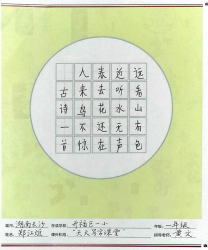 远看山有色
近听水无声
春去花还在
人来鸟不惊
古诗一首
城市：湖南长沙 在读学校：开福区一小 年级：一年级
姓名：郑江 "天天写字课堂" 指导老师：黄文